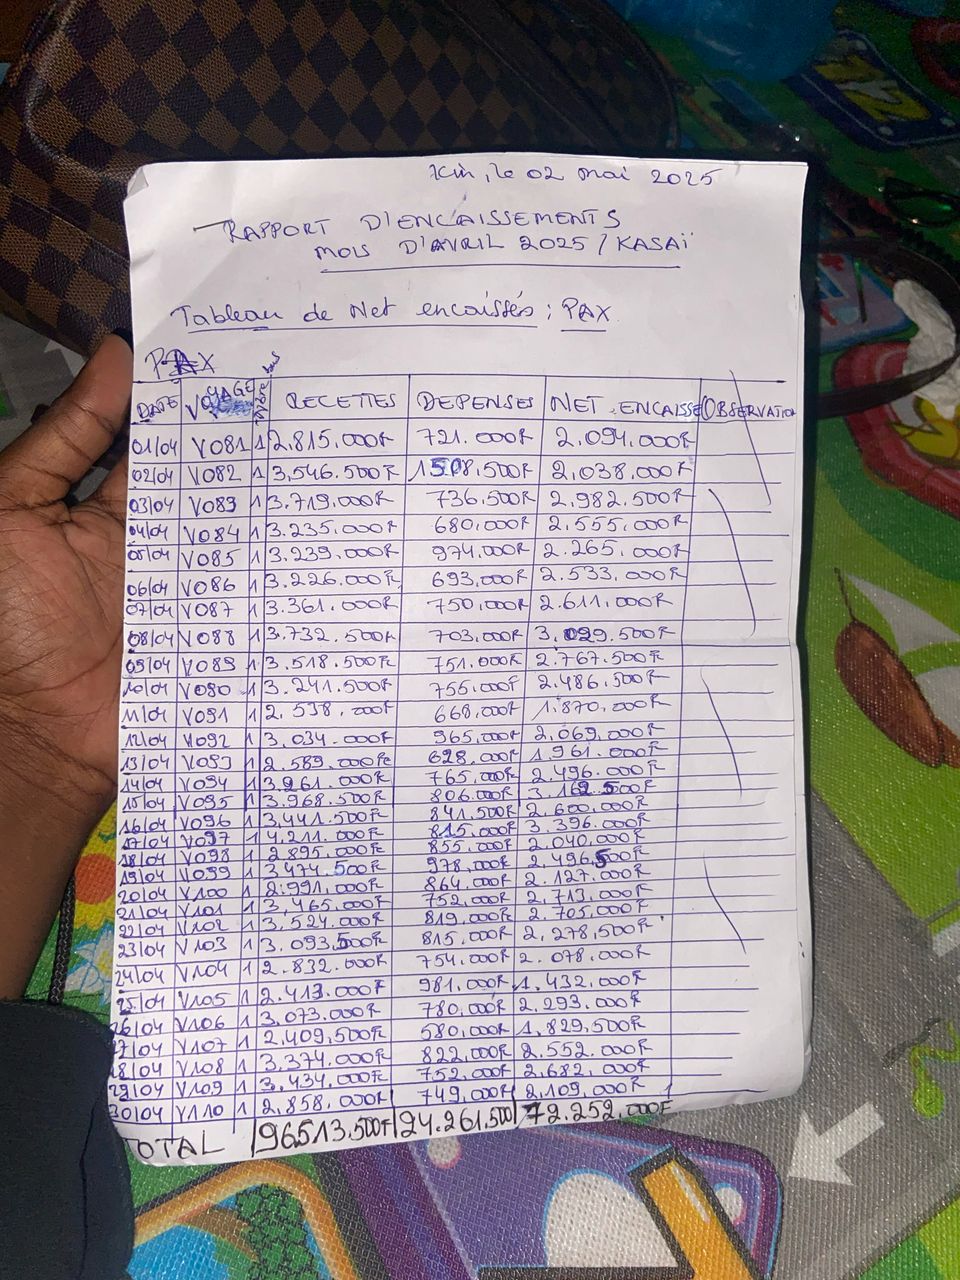 Kin, le 02 mai 2025
RAPPORT D'ENCAISSEMENTS
MOIS D'AVRIL 2025 / KASAÏ
Tableau de Net encaissés : PAX
PAX
DATE VOYAGE Nbre bus RECETTES DEPENSES NET ENCAISSE OBSERVATION
01/04 V081 1 2.815.000F 721.000F 2.094.000F
02/04 V082 1 3.546.500F 1508.500F 2.038.000F
03/04 V083 1 3.719.000F 736.500F 2.982.500F
04/04 V084 1 3.235.000F 680.000F 2.555.000F
05/04 V085 1 3.239.000F 974.000F 2.265.000F
06/04 V086 1 3.226.000F 693.000F 2.533.000F
07/04 V087 1 3.361.000F 750.000F 2.611.000F
08/04 V088 1 3.732.500F 703.000F 3.029.500F
09/04 V089 1 3.518.500F 751.000F 2.767.500F
10/04 V090 1 3.241.500F 755.000F 2.486.500F
11/04 V091 1 2.538.000F 668.000F 1.870.000F
12/04 V092 1 3.034.000F 965.000F 2.069.000F
13/04 V093 1 2.589.000Fc 628.000F 1.961.000F
14/04 V094 1 3.261.000F 765.000F 2.496.000F
15/04 V095 1 3.968.500F 806.000F 3.162.500F
16/04 V096 1 3.441.500F 841.500F 2.600.000F
17/04 V097 1 4.211.000F 815.000F 3.396.000F
18/04 V098 1 2.895.000F 855.000F 2.040.000F
19/04 V099 1 3.474.500F 978.000F 2.496.500F
20/04 V100 1 2.991.000F 864.000F 2.127.000F
21/04 V101 1 3.465.000F 752.000F 2.713.000F
22/04 V102 1 3.524.000F 819.000F 2.705.000F
23/04 V103 1 3.093.500F 815.000F 2.278.500F
24/04 V104 1 2.832.000F 754.000F 2.078.000F
25/04 V105 1 2.413.000F 981.000F 1.432.000F
26/04 V106 1 3.073.000F 780.000F 2.293.000F
27/04 V107 1 2.409.500F 580.000F 1.829.500F
28/04 V108 1 3.374.000F 822.000F 2.552.000F
29/04 V109 1 3.434.000F 752.000F 2.682.000F
30/04 V110 1 2.858.000F 749.000F 2.109.000F
TOTAL 96513.500F 24.261.500 72.252.000F